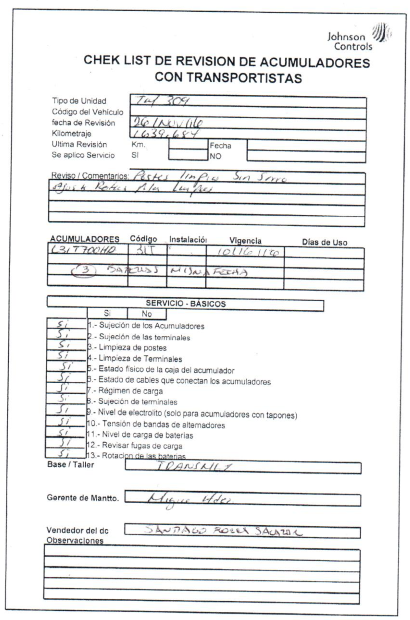 Johnson
Controls
CHEK LIST DE REVISION DE ACUMULADORES
CON TRANSPORTISTAS
Tipo de Unidad
Código del Vehículo
fecha de Revisión
Kilometraje 1639,684
Ultima Revisión Km. Fecha
Se aplico Servicio SI NO
Reviso / Comentarios: Postes limpios Sin Sarro
ACUMULADORES Código Instalación Vigencia Días de Uso
L31T700HD 31T 10/16/16
(3) MISMA FECHA
SERVICIO - BÁSICOS
Si No
Si 1.- Sujeción de los Acumuladores
Si 2.- Sujeción de las terminales
Si 3.- Limpieza de postes
Si 4.- Limpieza de Terminales
Si 5.- Estado físico de la caja del acumulador
Si 6.- Estado de cables que conectan los acumuladores
Si 7.- Régimen de carga
Si 8.- Sujeción de terminales
Si 9.- Nivel de electrolito (solo para acumuladores con tapones)
Si 10.- Tensión de bandas de alternadores
Si 11.- Nivel de carga de baterías
Si 12.- Revisar fugas de carga
Si 13.- Rotacion de las baterias
Base / Taller
Gerente de Mantto.
Vendedor del dc SANTIAGO
Observaciones